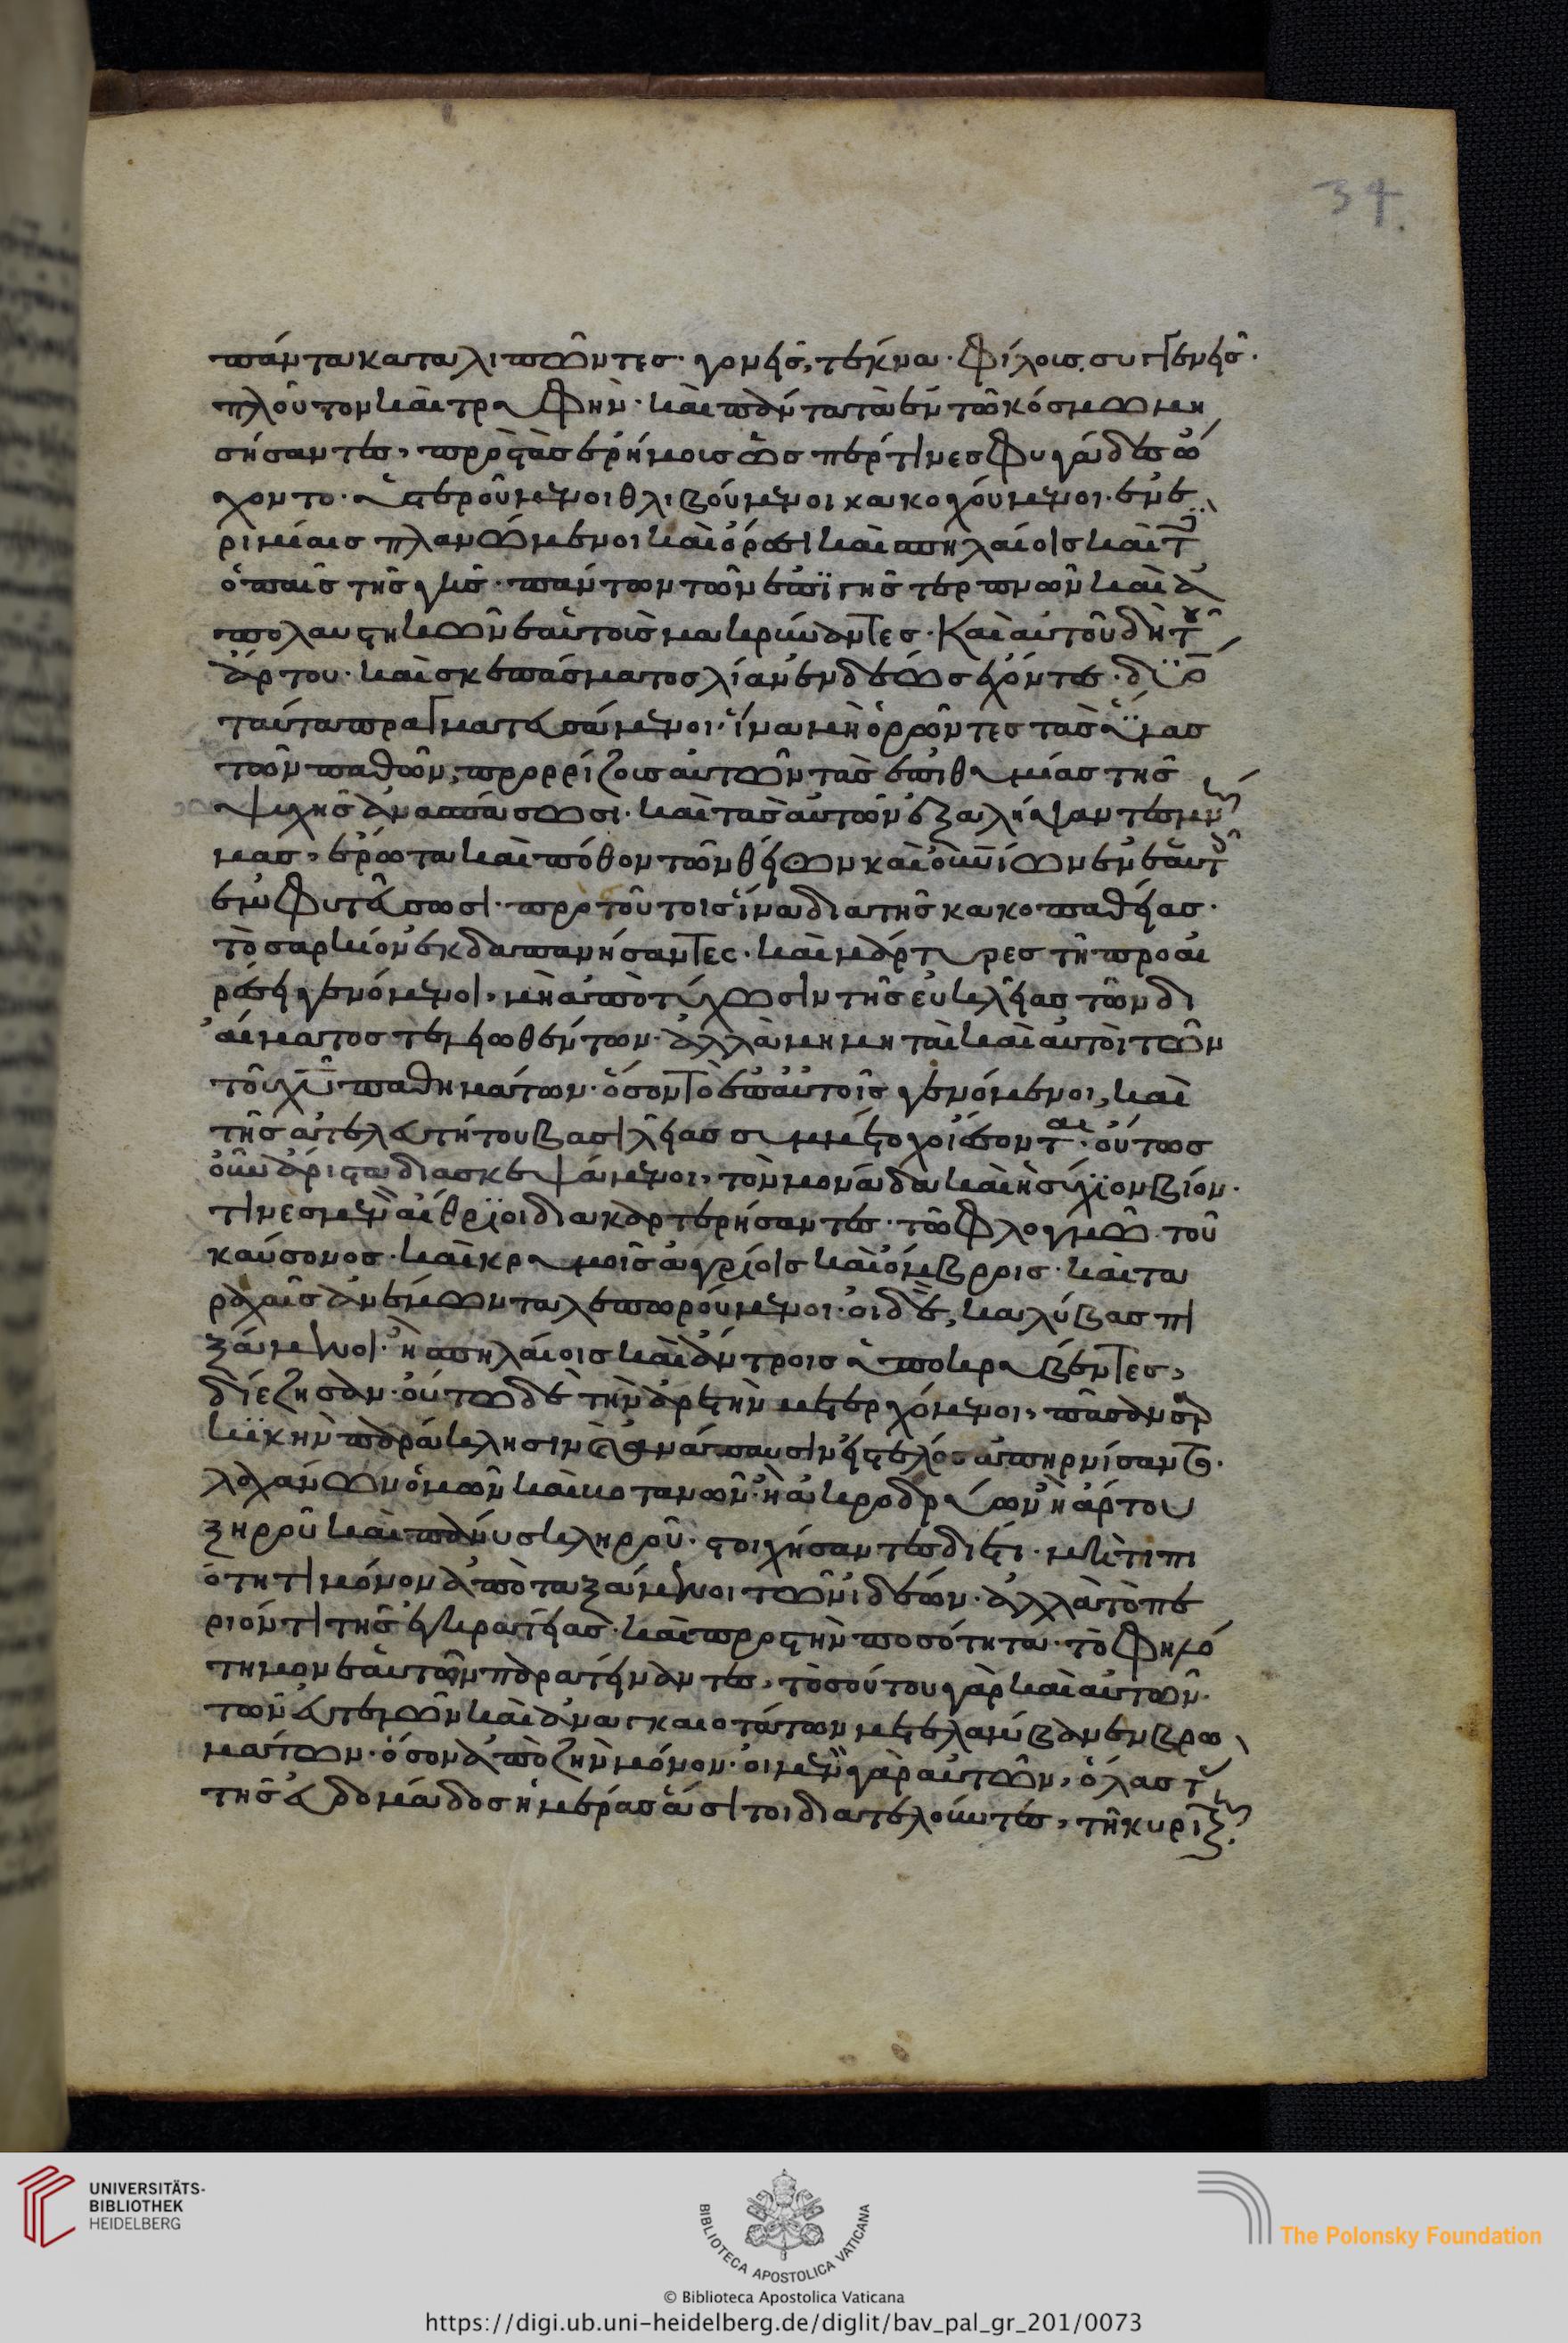 πάντα καταλιπῶντες· γονεῖς, τέκνα· φίλοις, συγγενεῖς·
πλοῦτον καὶ τρυφὴν· καὶ πάντα τὰ ἐν τῶ κόσμω μη
σήσαντες, πρὸς τὰς ἐρήμοις ὥς περ τινες φυγάδες ὤ
χοντο· ὑστερούμενοι θλιβούμενοι κακοχούμενοι· ἐν ἐ
ριμίαις πλανώμενοι καὶ ὄρεσι καὶ σπηλαίοις καὶ τ
ὀπαῖς τῆς γῆς· πάντων τῶν ἐπὶ γῆς τερπνῶν καὶ ἀ
πολαυστηκῶν ἑαυτοὶς μακρύναντες· Καὶ αὐτοῦ δὴ τοῦ
ἄρτου· καὶ σκεπάσματος λίαν ἐνδεῶς ἔχόντες· δϊο
ταύτα πραγματευσάμενοι· ἵνα μὴ ὁρῶντες τὰς ὕλας
τῶν παθῶν, προρρίζοις αὐτῶν τὰς ἐπιθυμίας τῆς
ψυχῆς ἀνασπάσωσι· καὶ τὰς αὐτῶν ἐξαλήψαντες μνή
μας, ἔρωτα καὶ πόθον τῶν θείων καὶ οὐνίων ἐν ἑαυτοῖς
ἐμφυτεύσωσι· πρὸ τοῦτοις ἵνα δια τῆς κακοπαθείας·
τὸ σαρκίον ἐκδαπανήσαντες· καὶ μάρτυρες τῆ προαι
ρέσει γενόμενοι, μὴ ἀποτύχωσιν τῆς εὐκλείας τῶν δι
αἵματος τελειωθέντων· ἀλλὰ μημηταὶ καὶ αὐτοὶ τῶν
τοῦ χυ παθημάτων· ὅσον τὸ ἐπ αὐτοῖς γενόμενοι, καὶ
τῆς ἀτελευτήτου βασιλείας συμμέτοχοι ἔσονται· οὕτως
οὖν ἄριστα διασκεψάμενοι, τὸν μονάδα καὶ ἡσύχϊον βίον·
τινὲς μὲν αἴθρϊοι διακαρτερήσαντες· τῶ φλογμῶ τοῦ
καύσονος· καὶ κρυμοῖς ἀγρίοις καὶ ὄμβροις· καὶ τα
ραχαῖς ἀνέμων ταλεπωρούμενοι· οἱ δὲ, καλύβας πη
ξάμενοι· ἢ σπηλαίοις καὶ ἄντροις ὑποκρυβέντες,
διέζησαν· οὕτω δὲ τὴν ἀρετὴν μετερχόμενοι, πᾶσαν σαρ
κϊκὴν παράκλησιν καὶ ἀνάπαυσιν εἰς τέλος ἀπηρνίσαντο·
λαχάνων ὁμῶν καὶ βοτανῶν· ἢ ἀκροδρύων ἢ ἄρτου
ξηροῦ καὶ πάνυ σκληροῦ· στοιχήσαντες διέτι· μὴ τὶ πι
ότητι μόνον ἀποταξάμενοι τῶν ἡδέων· ἀλλὰ τὸ πε
ριόντι τῆς ἐγκρατείας· καὶ πρὸς τὴν ποσότητα· τὸ φηλό
τημον ἑαυτῶν παρατείναντες, τοσούτου γὰρ καὶ αὐτῶν·
τῶν εὐτελῶν καὶ ἀναγκαιοτάτων μετελάμβανεν βρω
μάτων· ὅσον ἀποζὴν μόνον· οἱ μὲν γὰρ αὐτῶν, ὅλας τὰς
τῆς ἑβδομάδος ἡμέρας ἄσιτοι διατελούντες, τῆ κυριακῆ
34.
UNIVERSITÄTS-
BIBLIOTHEK
HEIDELBERG
BIBLIOTECA APOSTOLICA VATICANA
The Polonsky Foundation
© Biblioteca Apostolica Vaticana
https://digi.ub.uni-heidelberg.de/diglit/bav_pal_gr_201/0073